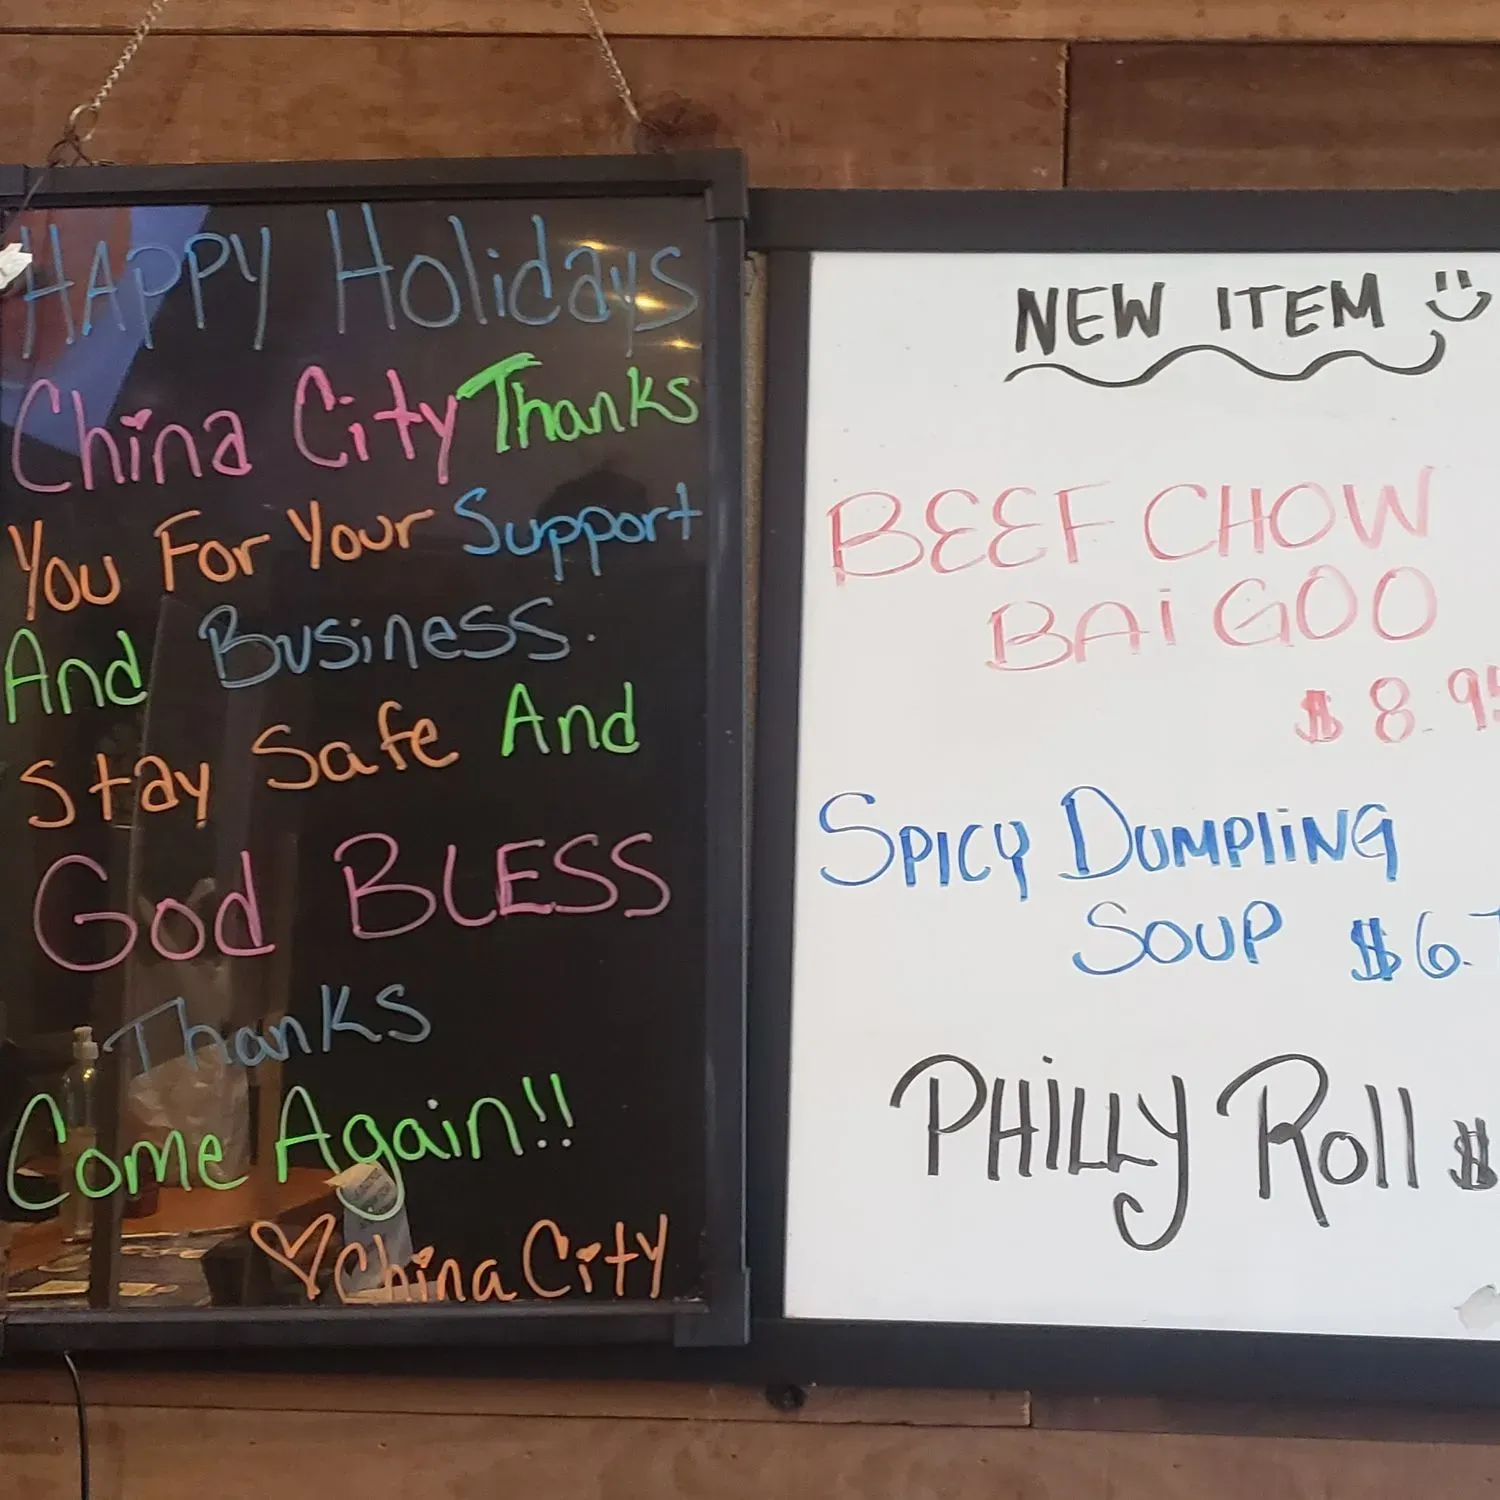 HAPPY Holidays
China City Thanks
You For Your Support
And Business.
Stay Safe And
God BLESS
Thanks
Come Again!!
China City
NEW ITEM
BEEF CHOW
BAi GOO
$8.95
SPICY DUMPLiNG
SOUP $6.
PHiLLY Roll $